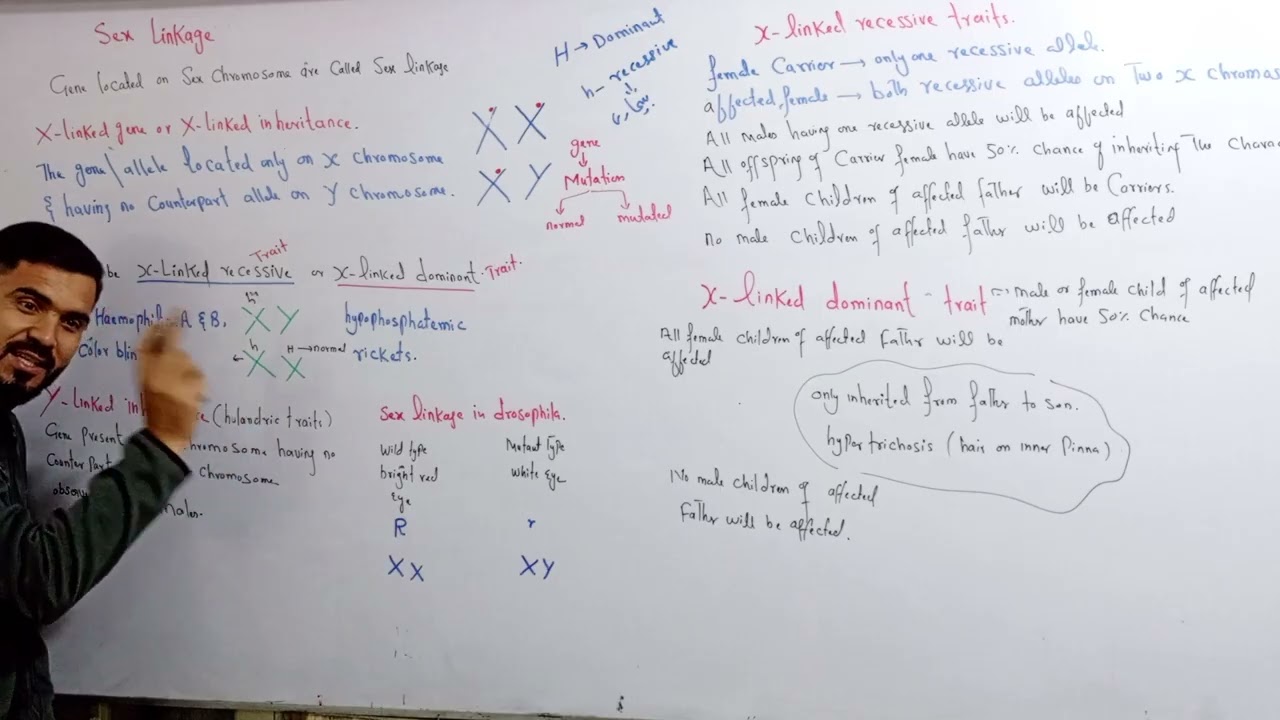 Sex Linkage
Gene located on Sex Chromosome are Called Sex linkage
X-linked gene or X-linked inheritance.
The gene\allele located only on X Chromosome
& having no Counterpart allele on Y Chromosome.
X X
X Y
H → Dominant
h → recessive
gene
Mutation
normal mutated
be X-Linked recessive or X-linked dominant Trait.
Trait
Haemophil A & B,
X Y
hypophosphatemic
Color blin
h H → normal
X X
rickets.
Y-Linked inh e (hulandric traits)
Gene present hromosome having no
Counter Part Chromosome
males.
Sex linkage in drosophila.
Wild type Mutant Type
bright red White Eye
Eye
R r
XX XY
X-linked recessive traits.
female Carrier → only one recessive allele.
affected female → both recessive alleles on Two X Chromas
All males having one recessive allele will be affected
All offspring of Carrier female have 50% Chance of inheriting The Charac
All female Children of affected father will be Carriers.
no male Children of affected father will be affected
X-linked dominant - trait male or female child of affected
mother have 50% Chance
All female children of affected Father will be
affected
only inherited from father to son.
hypertrichosis (hair on inner Pinna)
No male children of affected
Father will be affected.